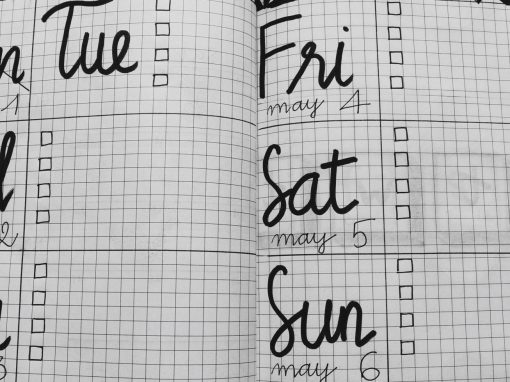 Tue
1
2
3
Fri
may 4
Sat
may 5
Sun
may 6